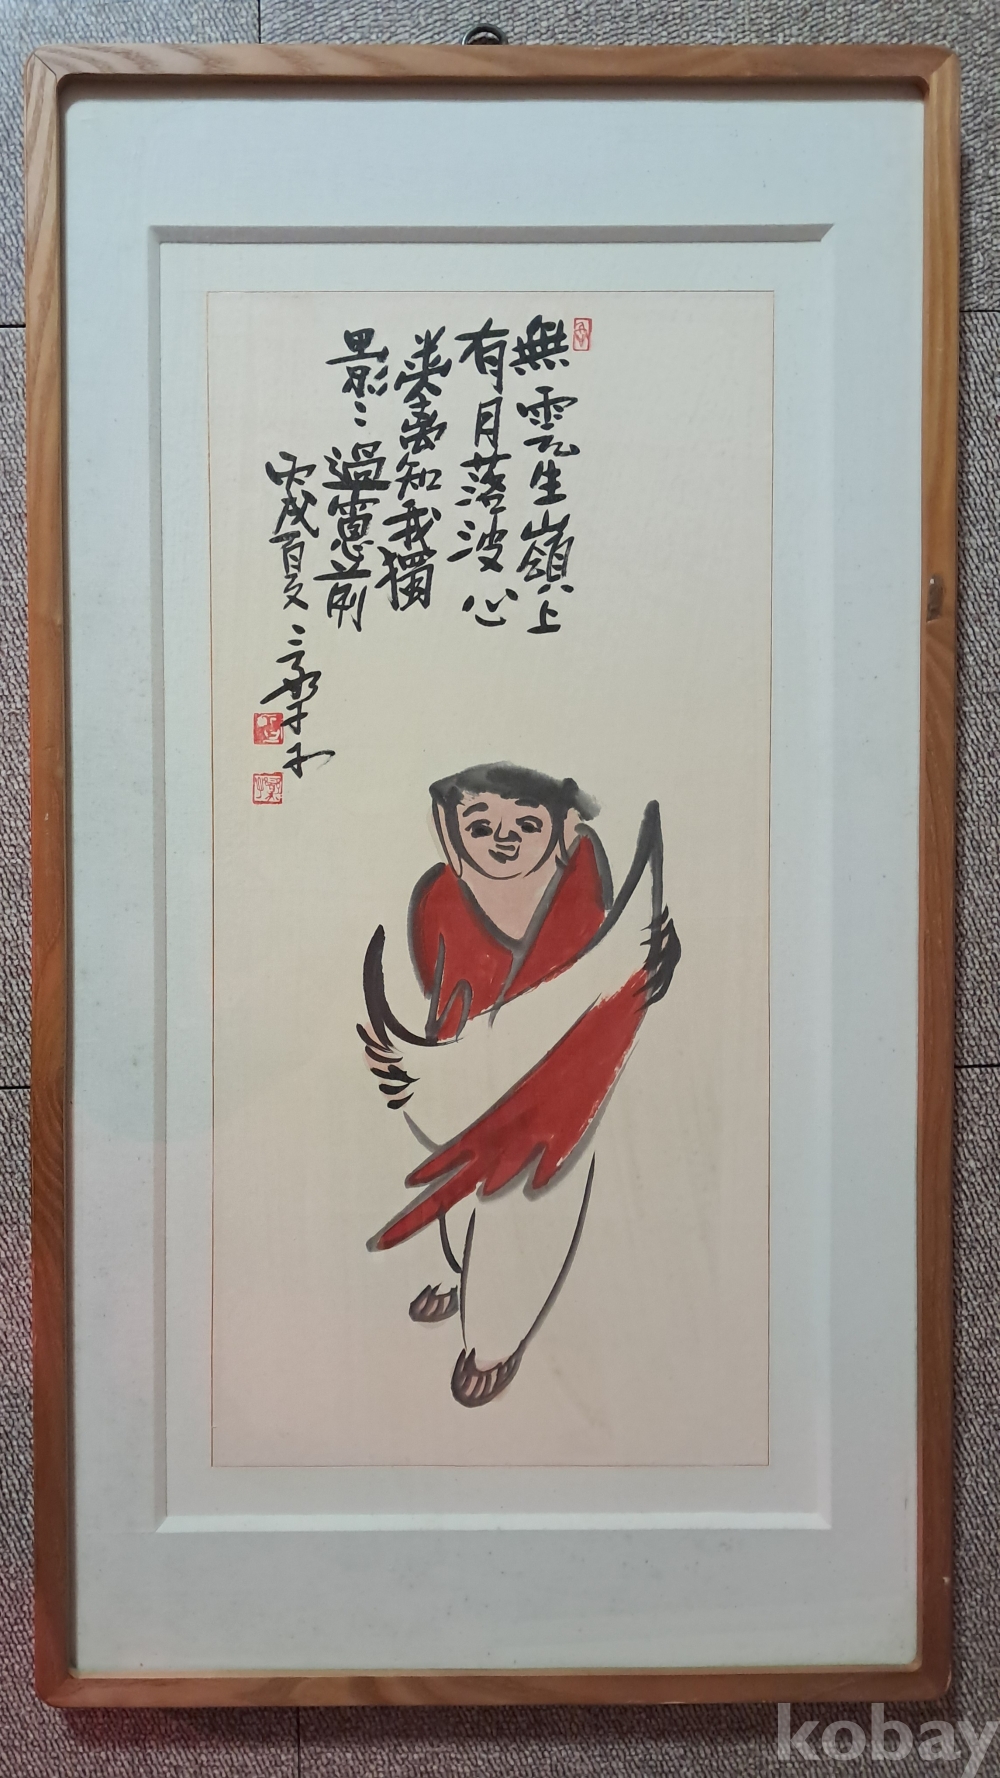 無雲生嶺上
有月落波心
知我獨
影〻過窓前
丙戌夏
kobay